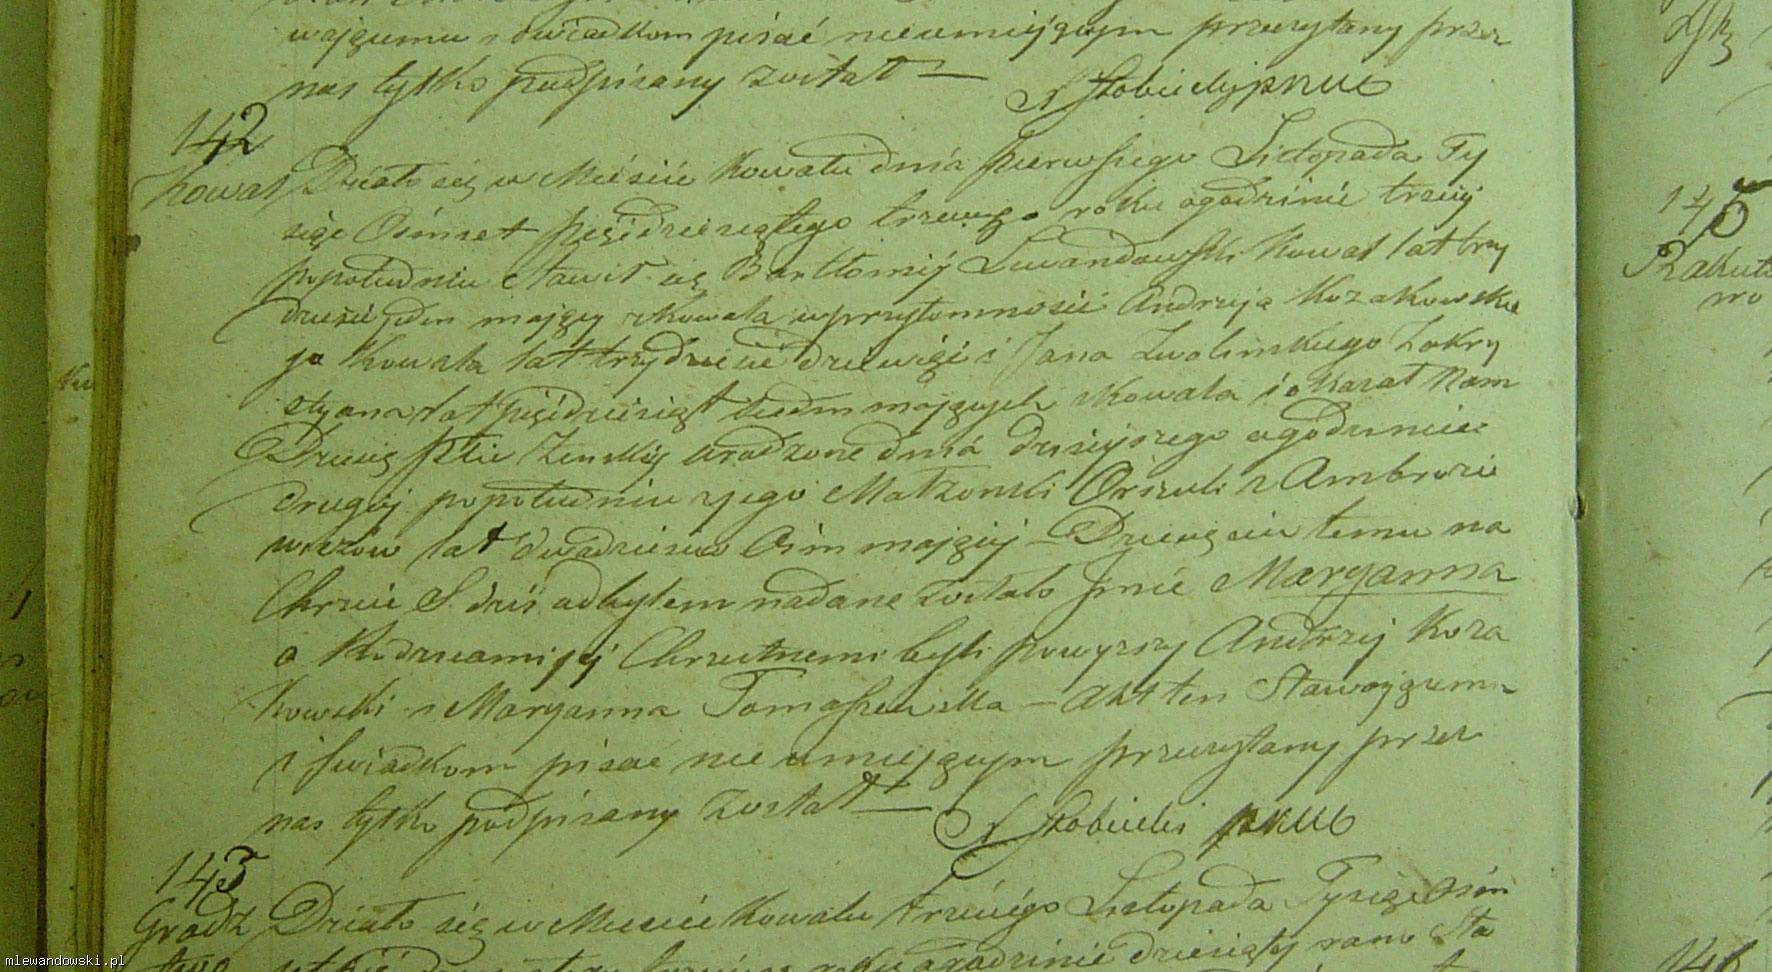 wającemu i świadkom pisać nieumiejącym przeczytany przez
nas tylko podpisany został —
142
Kowal
Działo się w Mieście Kowalu dnia pierwszego Listopada Ty
siąc Ośmset pięćdziesiątego trzeciego roku o godzinie trzeciej
popołudniu stawił się Bartłomiej Lewandowski Kowal lat trzy
dzieści jeden mający z Kowala w przytomności Andrzeja Kozakowskie
go Kowala lat trzydzieści dziewięć i Jana Zwolinskiego Zakry
styana lat pięćdziesiąt siedm mających z Kowala i okazał Nam
Dziecię płci Żenskiej urodzone dnia dzisiejszego o godzinie
drugiej popołudniu z jego Małżonki Orszuli z Ambrozie
wiczów lat dwadzieścia Ośm mającej — Dziecięciu temu na
Chrzcie S. dziś odbytem nadane zostało Jmie Maryanna
a Rodzicami jej Chrzestnemi byli powyższy Andrzej Koza
kowski i Maryanna Tomaszewska — Akt ten Stawającemu
i świadkom pisać nie umiejącym przeczytany przez
nas tylko podpisany został —
143
Działo się w Mieście Kowalu trzeciego Listopada Tysiąc Ośm
o godzinie dziesiątej rano Sta
145
mlewandowski.pl